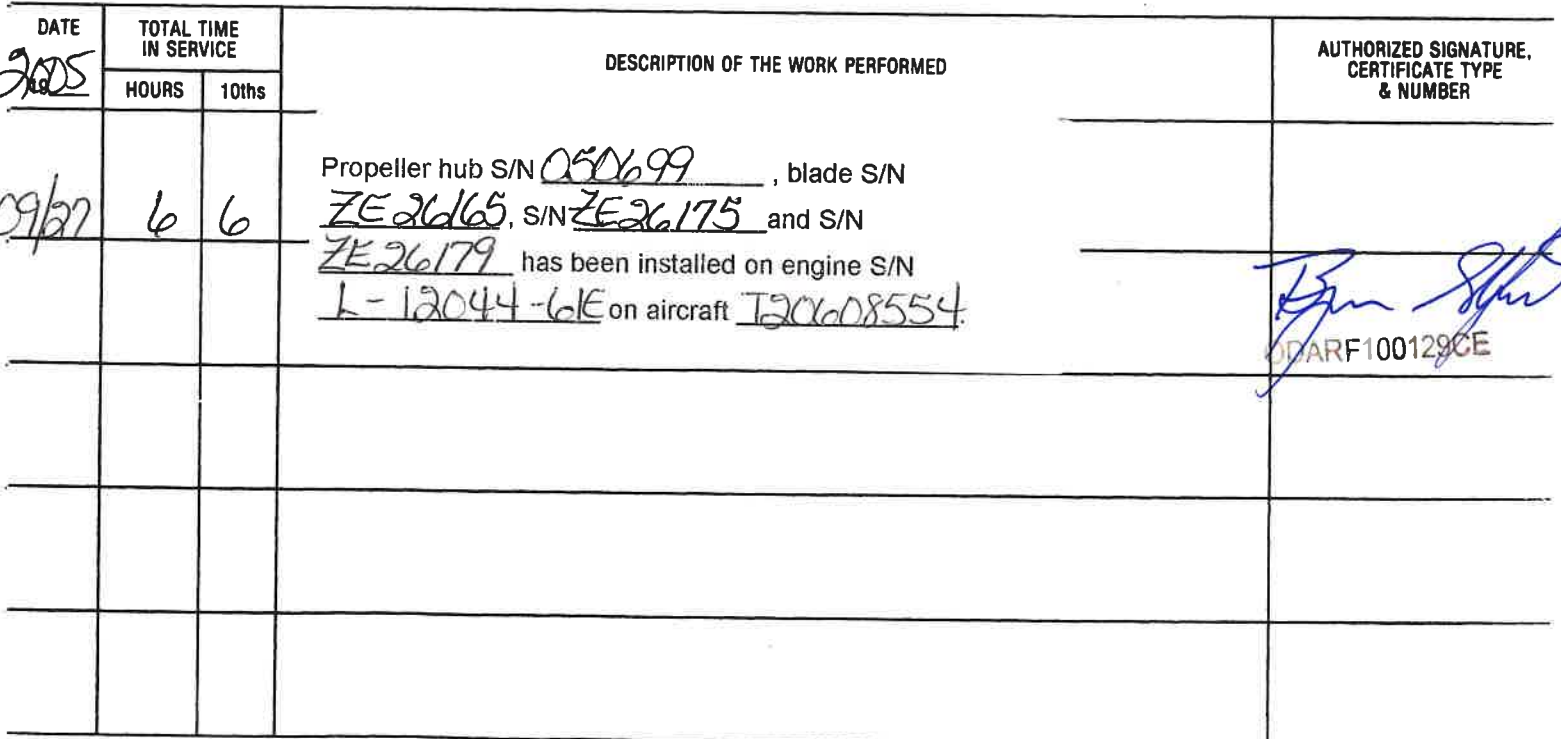 DATE
2005
TOTAL TIME
IN SERVICE
HOURS
10ths
DESCRIPTION OF THE WORK PERFORMED
AUTHORIZED SIGNATURE,
CERTIFICATE TYPE
& NUMBER
09/27
6
6
Propeller hub S/N 050699 , blade S/N
ZE26165, S/N ZE26175 and S/N
ZE26179 has been installed on engine S/N
L-12044-61E on aircraft T20608554.
ODARF100129CE